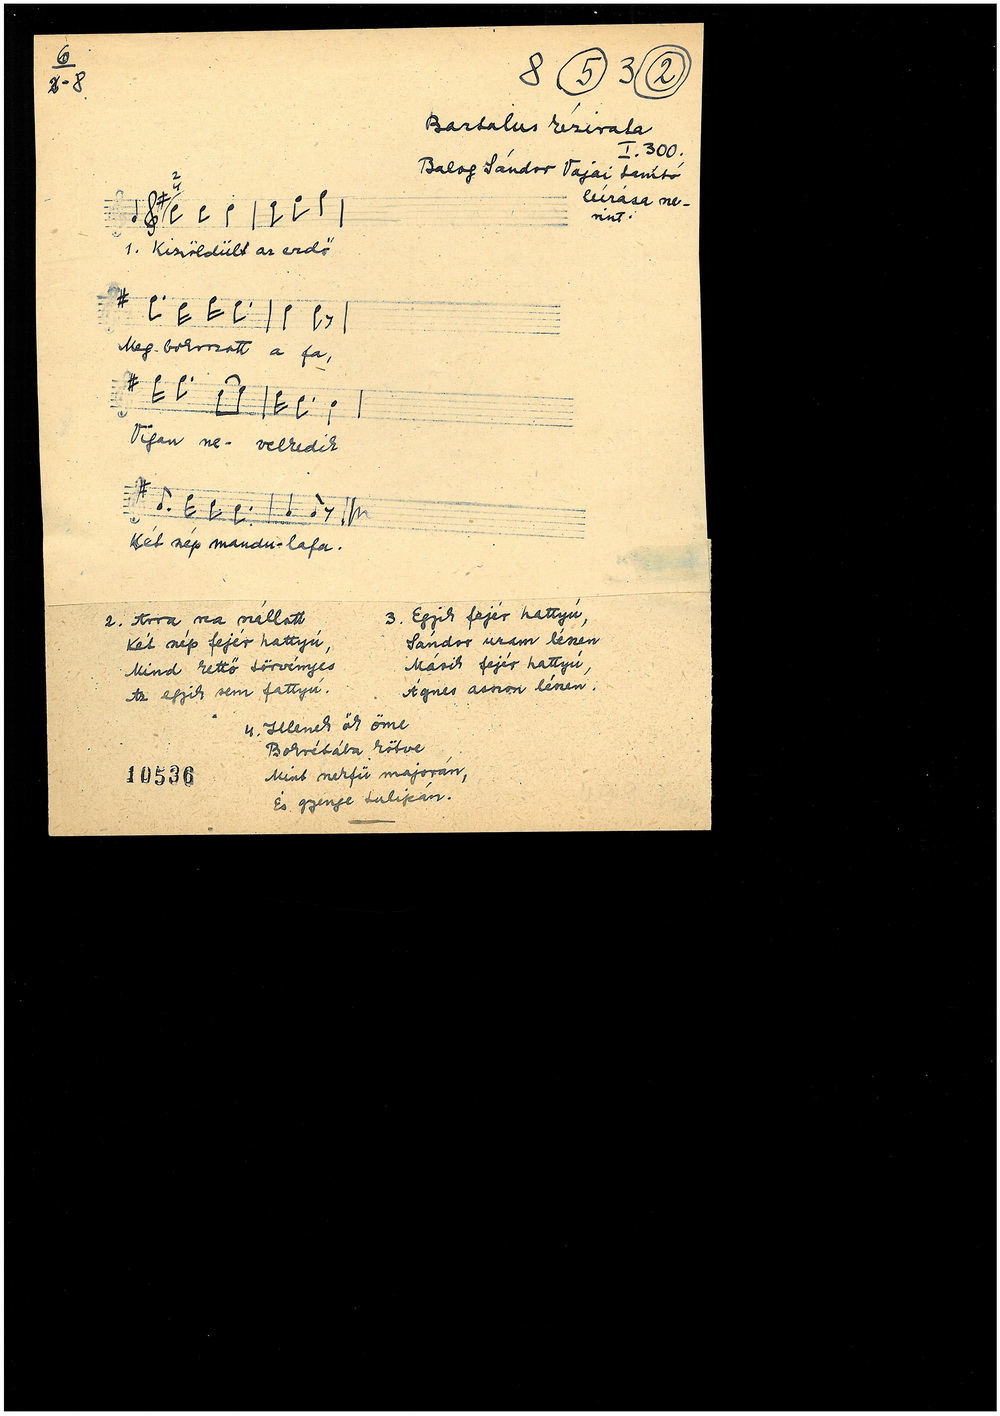 6
8 5 3 2
2-8
Bartalus kézirata
I. 300.
Balog Sándor Vajai tanító
leírása sze-
rint:
2
4
1. Kizöldült az erdő
Meg-bokrozott a fa,
Vígan ne- velkedik
Két szép mandu-lafa.
2. Arra rea szállott
Két szép fejér hattyú,
Mind kettő törvényes
Az egyik sem fattyú.
3. Egyik fejér hattyú,
Sándor uram lészen
Másik fejér hattyú,
Ágnes asszon lészen.
4. Illenek ők öszve
Bokrétába kötve
Mint szekfü majorán,
És gyenge tulipán.
10536